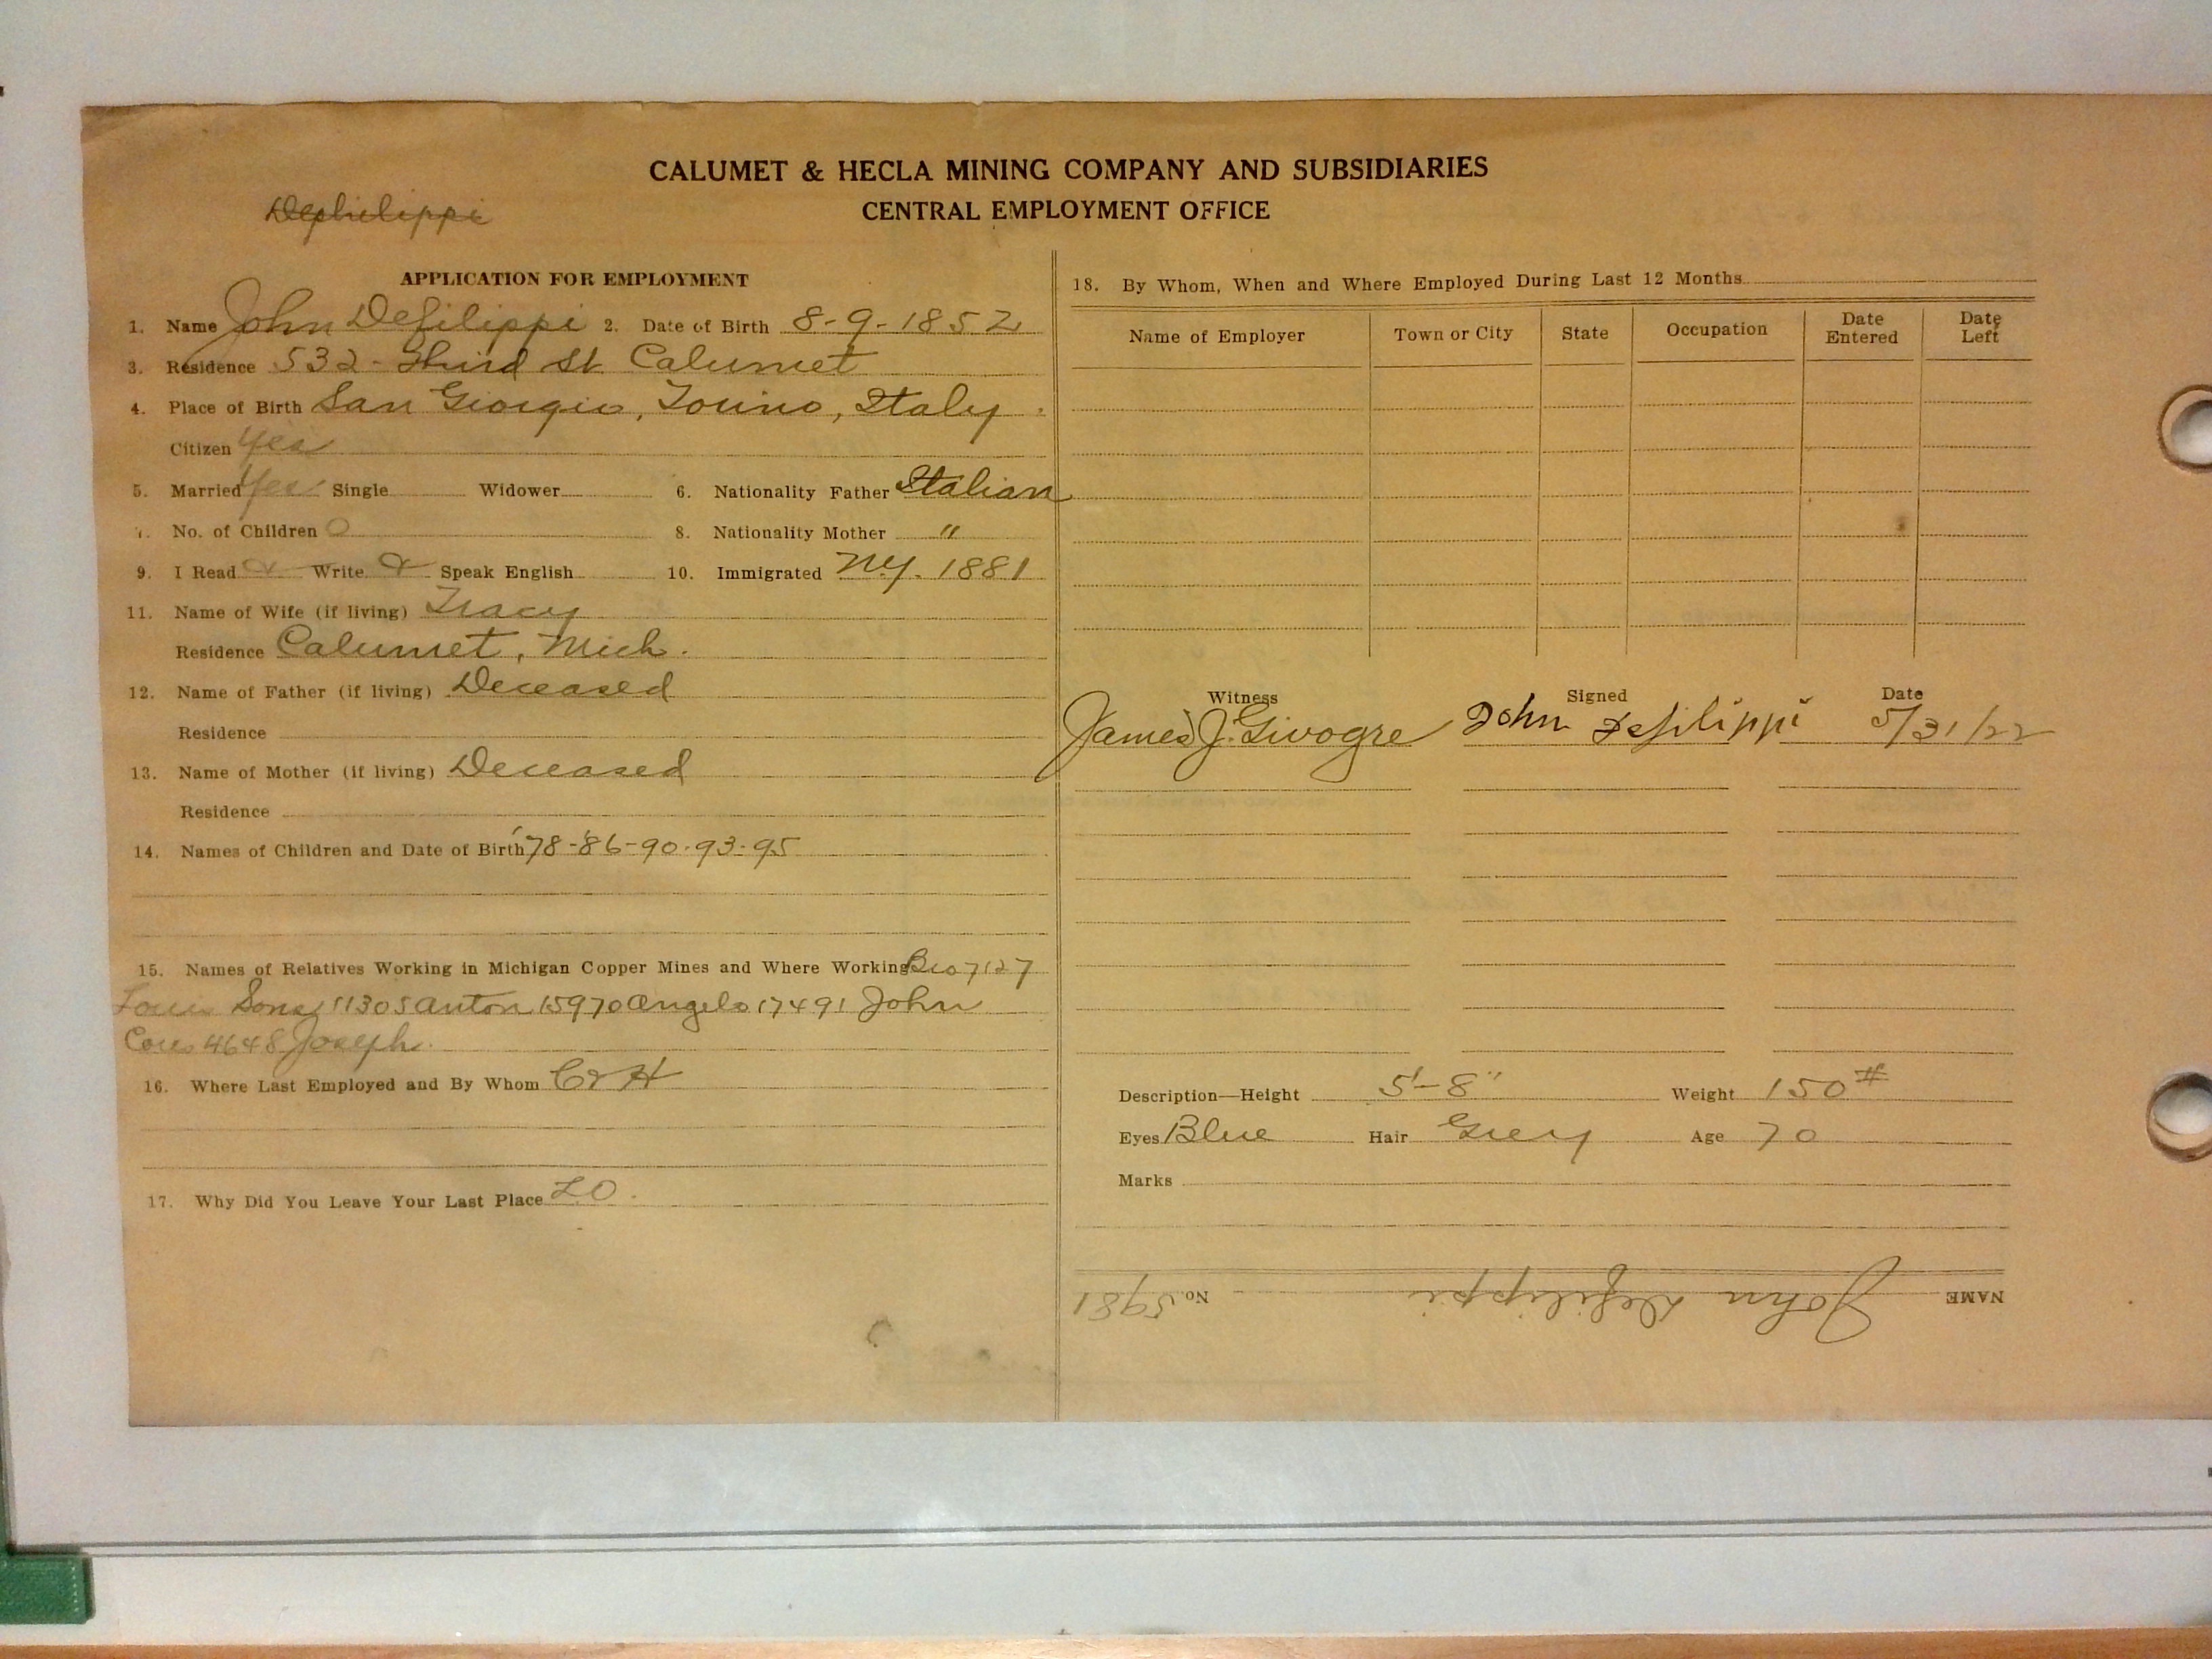 CALUMET & HECLA MINING COMPANY AND SUBSIDIARIES
CENTRAL EMPLOYMENT OFFICE
Dephilippi
APPLICATION FOR EMPLOYMENT
1. Name John Defilippi 2. Date of Birth 8-9-1852
3. Residence 532 - Third St Calumet
4. Place of Birth San Giorgio, Torino, Italy.
Citizen Yes
5. Married Yes Single Widower 6. Nationality Father Italian
7. No. of Children 0 8. Nationality Mother "
9. I Read & Write & Speak English 10. Immigrated N.Y. 1881
11. Name of Wife (if living) Tracy
Residence Calumet, Mich.
12. Name of Father (if living) Deceased
Residence
13. Name of Mother (if living) Deceased
Residence
14. Names of Children and Date of Birth '78-'86-90-93-95
15. Names of Relatives Working in Michigan Copper Mines and Where Working Bro 7127
Louis Sons 11305 Anton 15970 Angelo 17491 John
4648 Joseph.
16. Where Last Employed and By Whom C & H
17. Why Did You Leave Your Last Place LO.
18. By Whom, When and Where Employed During Last 12 Months
Name of Employer Town or City State Occupation Date Entered Date Left
Witness Signed Date
James J. Givogre John Defilippi 5/31/22
Description—Height 5'-8" Weight 150#
Eyes Blue Hair Grey Age 70
Marks
NAME John Defilippi No. 5981